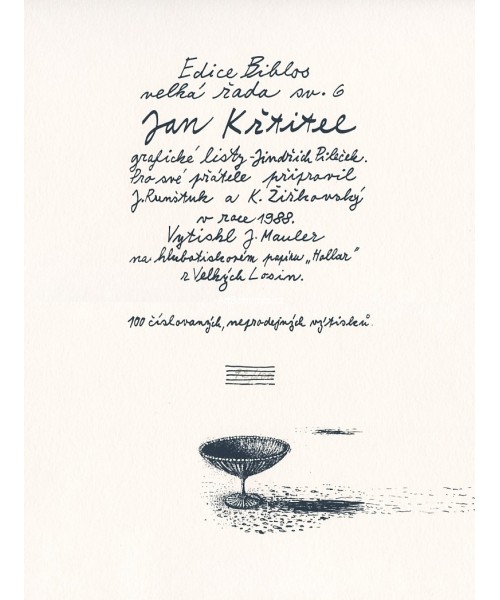 Edice Biblos
velká řada sv. 6
Jan Křtitel
grafické listy - Jindřich Pileček.
Pro své přátele připravil
J. Runštuk a K. Žižkovský
v roce 1988.
Vytiskl J. Mauler
na hlubotiskovém papíru „Hollar"
z Velkých Losin.
100 číslovaných, neprodejných výtisků.